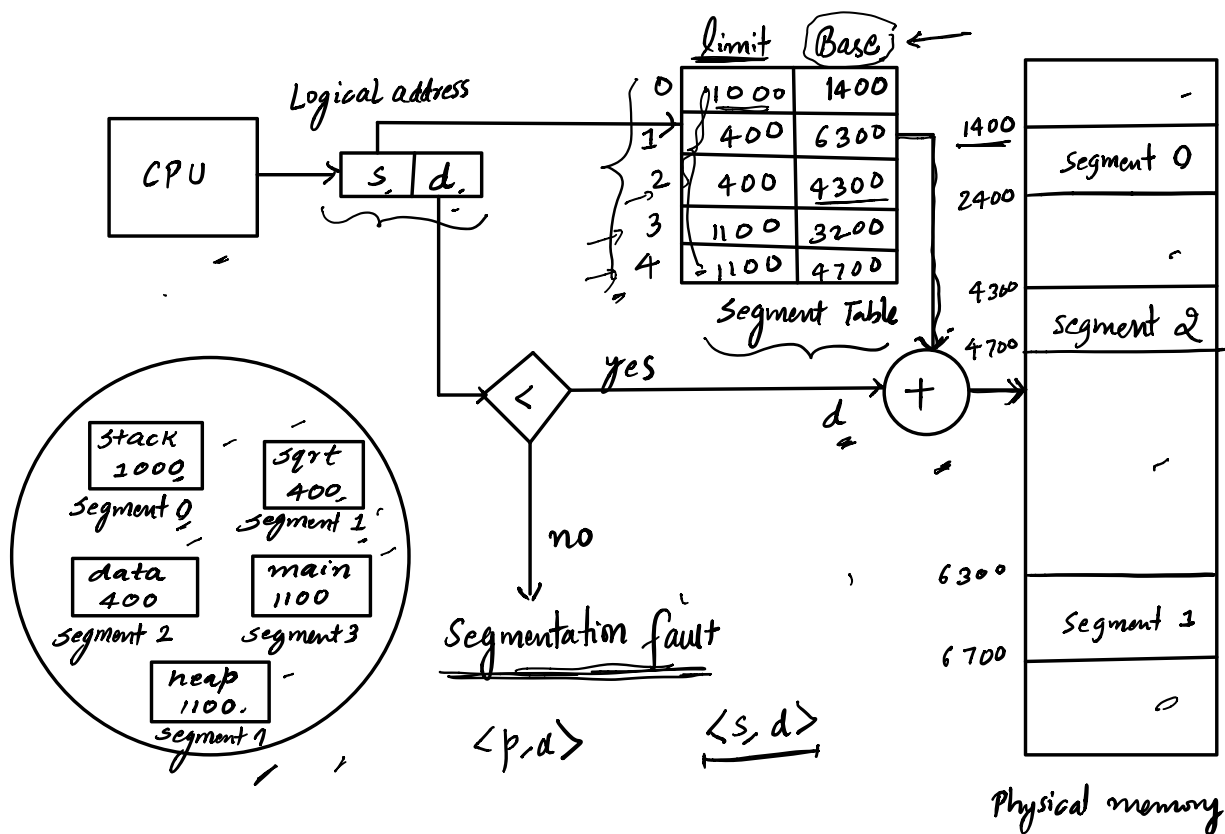 limit Base
Logical address
CPU
s d
0 1000 1400
1 400 6300
2 400 4300
3 1100 3200
4 1100 4700
Segment Table
<
yes
d
+
no
Segmentation fault
<p,d> <s, d>
stack
1000
segment 0
sqrt
400
segment 1
data
400
segment 2
main
1100
segment 3
heap
1100
segment
1400
segment 0
2400
4300
segment 2
4700
6300
segment 1
6700
Physical memory